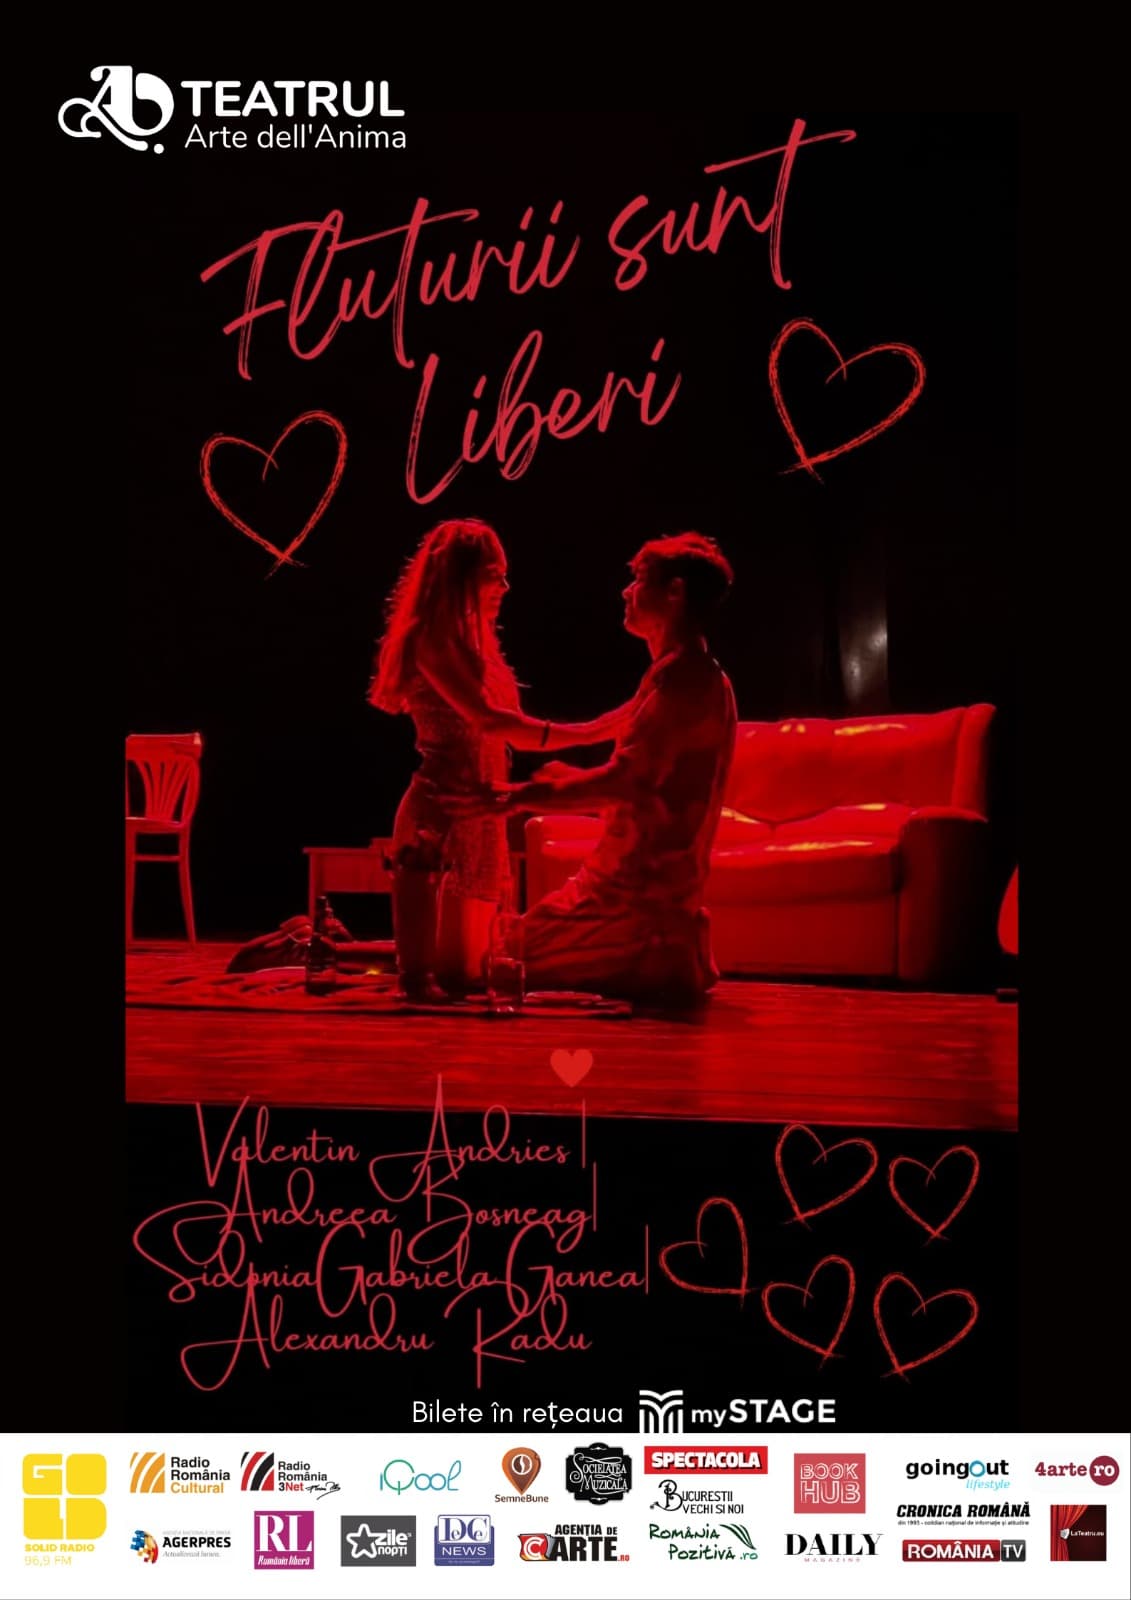 TEATRUL
Arte dell'Anima
Fluturii sunt
Liberi
Valentin Andries|
Andreea Bosneag|
Sidonia Gabriela Ganea|
Alexandru Radu
Bilete în rețeaua mySTAGE
GOLD
SOLID RADIO
96,9 FM
Radio
România
Cultural
Radio
România
3Net
iQool
SemneBune
SOCIETATEA
MUZICALĂ
SPECTACOLA
BUCUREȘTII
VECHI SI NOI
BOOK
HUB
goingout
lifestyle
4arte ro
AGERPRES
Actualizează lumea.
RL
România liberă
zile
nopți
DC
NEWS
AGENȚIA DE
CARTE.RO
ROMÂNIA
POZITIVĂ.ro
DAILY
MAGAZINE
CRONICA ROMÂNĂ
din 1993 - cotidian național de informație și atitudine
ROMÂNIA TV
LaTeatru.eu